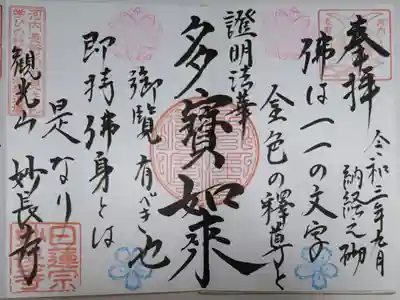 奉拝
令和三年九月
納経之砌
佛は一一の文字
金色の釋尊と
證明法華
多寶如来
御覧有べき也
即持佛身とは
是なり
観光山 妙長寺
日蓮宗